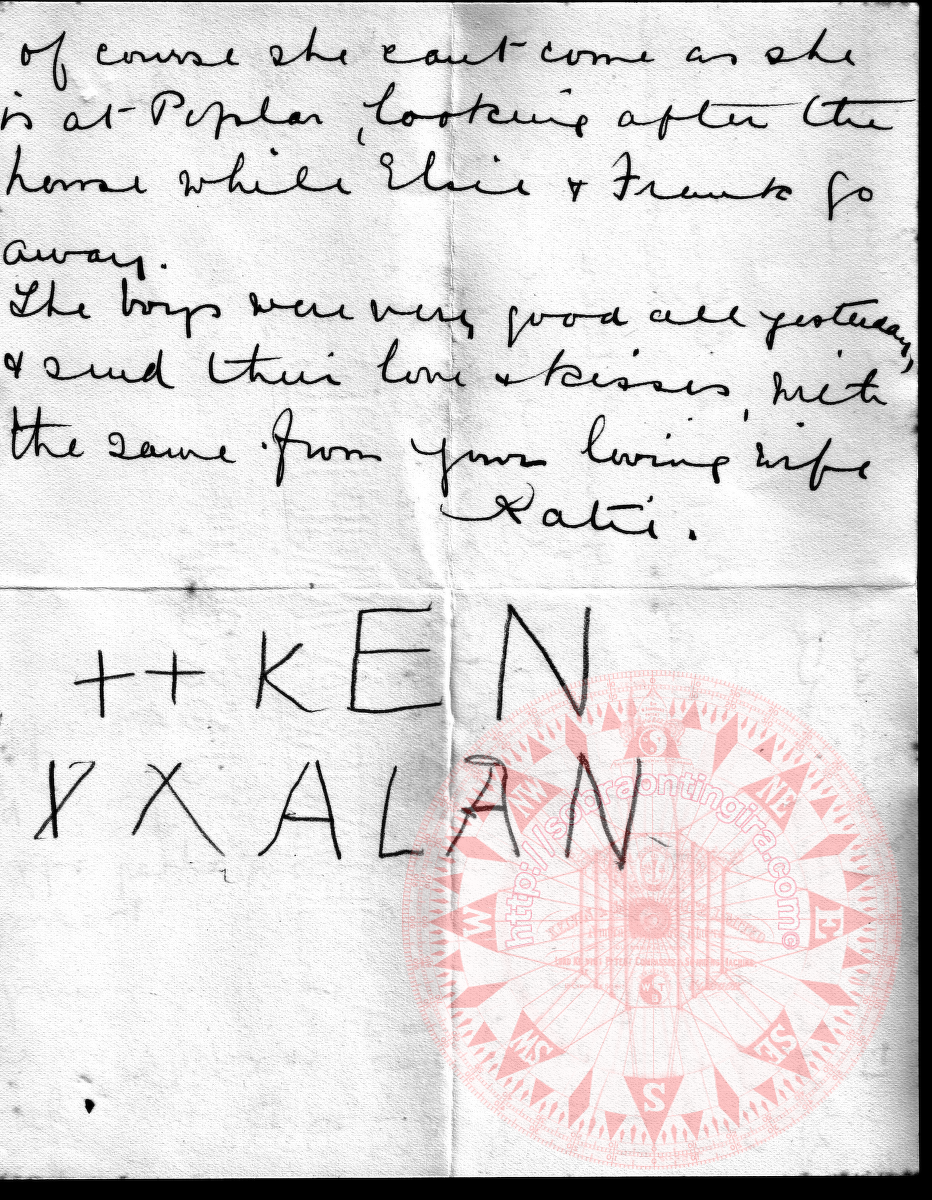 of course she cant come as she
is at Poplar, looking after the
house while Elsie & Frank go
away.
The boys were very good all yesterday,
& send their love & kisses, with
the same from your loving wife
Katie.
++ KEN
X X ALAN
http://sondraontingira.com©
NW
NE
W
E
SW
SE
S